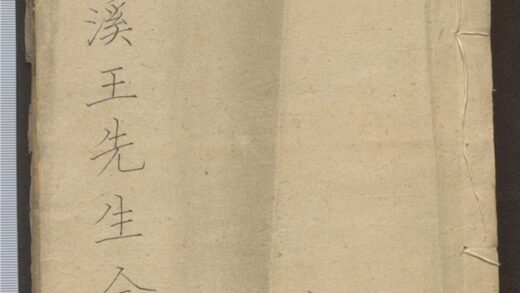 溪王先生全